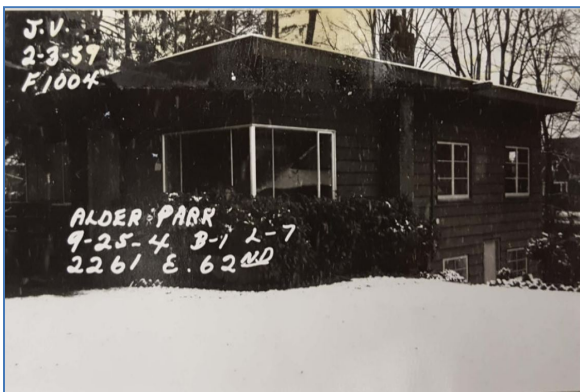 J.V.
2-3-59
F1004
ALDER PARK
9-25-4 B-1 L-7
2261 E. 62ND